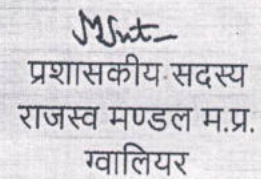 प्रशासकीय सदस्य
राजस्व मण्डल म.प्र.
ग्वालियर